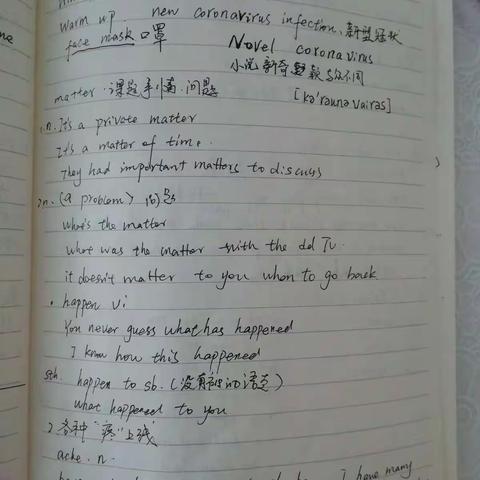 warm up new coronavirus infection. 新型冠状
face mask 口罩 Novel coronavirus
小说 新奇
matter. 课题 事情. 问题 [kə'rəunə vairəs]
1.n. It's a private matter
It's a matter of time.
They had important matters to discuss
2n. (a problem) 问题
what's the matter
what was the matter with the old TV.
it doesn't matter to you when to go back
· happen vi
You never guess what has happened
I know how this happened
sth. happen to sb. (没有被动语态)
what happened to you
2 各种"疼"上线
ache. n.
I have many